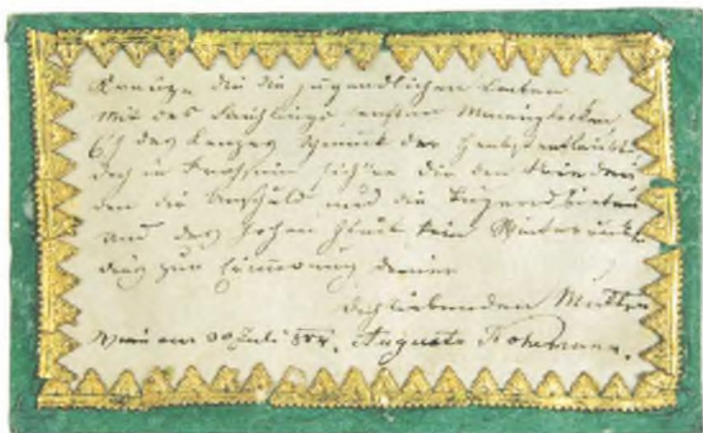 Kränze dir die jugendlichen Locken
Mit des Frühlings ersten Maienglocken
Eh des Lenzes Schmuck der Herbst entlaubt
Doch in Frohsinn sich're dir den Frieden
den die Unschuld und die Tugend bieten
und des kein Winter raubt
dies zur Erinnerung deiner
dich liebenden Mutter
Wien am 30 Juli Auguste